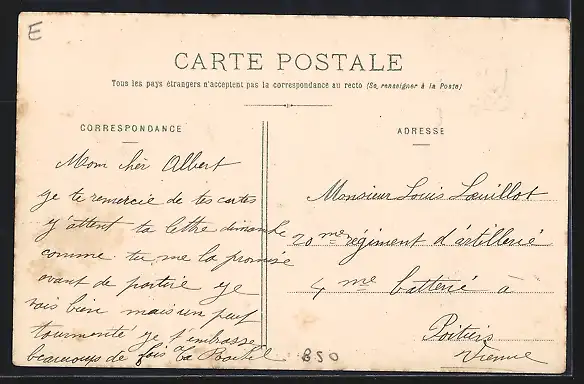 E
CARTE POSTALE
Tous les pays étrangers n'acceptent pas la correspondance au recto (Se renseigner à la Poste)
CORRESPONDANCE
Mom cher Albert
ge te remercie de tes cartes
g'attent ta lettre dimanche
comme tu me la promise
avant de partire ge
vais bien mais un peut
tourmenté ge t'embrasse
beaucoups de fois ta
ADRESSE
Monsieur Louis Louillot
20 me régiment d'artillerie
4 me batterié à
Poitiers
Vienne
850